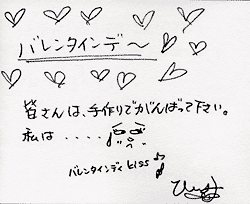 バレンタインデ〜
皆さんは、手作りでがんばって下さい。
私は・・・・
バレンタインディ kiss♪